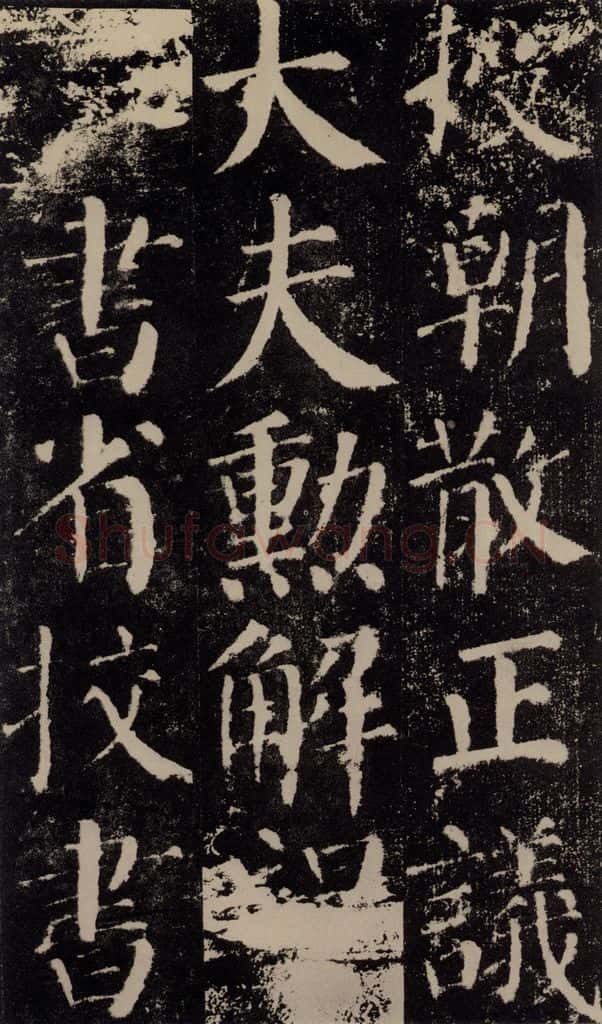 授朝散正議
大夫勳解
書省挍書
Shufawang.CN